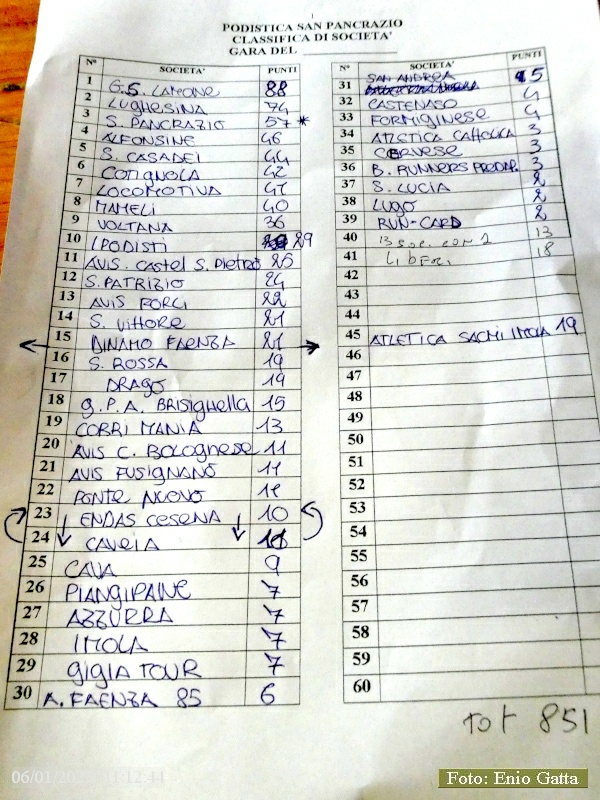 PODISTICA SAN PANCRAZIO
CLASSIFICA DI SOCIETA'
GARA DEL
N° SOCIETA' PUNTI
1 G.S. LAMONE 88
2 LUGHESINA 74
3 S. PANCRAZIO 57 *
4 ALFONSINE 46
5 S. CASADEI 44
6 COTIGNOLA 42
7 LOCOMOTIVA 41
8 MAMELI 40
9 VOLTANA 36
10 IPODISTI 29
11 AVIS. CASTEL S. PIETRO 25
12 S. PATRIZIO 24
13 AVIS FORLI 22
14 S. VITTORE 21
15 DINAMO FAENZA 21
16 S. ROSSA 19
17 DRAGO 19
18 G.P.A. BRISIGHELLA 15
19 CORRI MANIA 13
20 AVIS C. BOLOGNESE 11
21 AVIS FUSIGNANO 11
22 PONTE NUOVO 11
23 ENDAS CESENA 10
24 CAVEIA
25 CAVA 9
26 PIANGIPANE 7
27 AZZURRA 7
28 IMOLA 7
29 GIGIA TOUR 7
30 A. FAENZA 85 6
N° SOCIETA' PUNTI
31 SAN ANDREA 5
32 CASTENASO 4
33 FORMIGINESE 4
34 ATLETICA CATTOLICA 3
35 CERVESE 3
36 B. RUNNERS 3
37 S. LUCIA 2
38 LUGO 2
39 RUN-CARD 2
40 13 SOC. CON 1 13
41 LIBERI 18
42
43
44
45 ATLETICA SACMI IMOLA 19
46
47
48
49
50
51
52
53
54
55
56
57
58
59
60
TOT 851
06/01/20 12:44
Foto: Enio Gatta